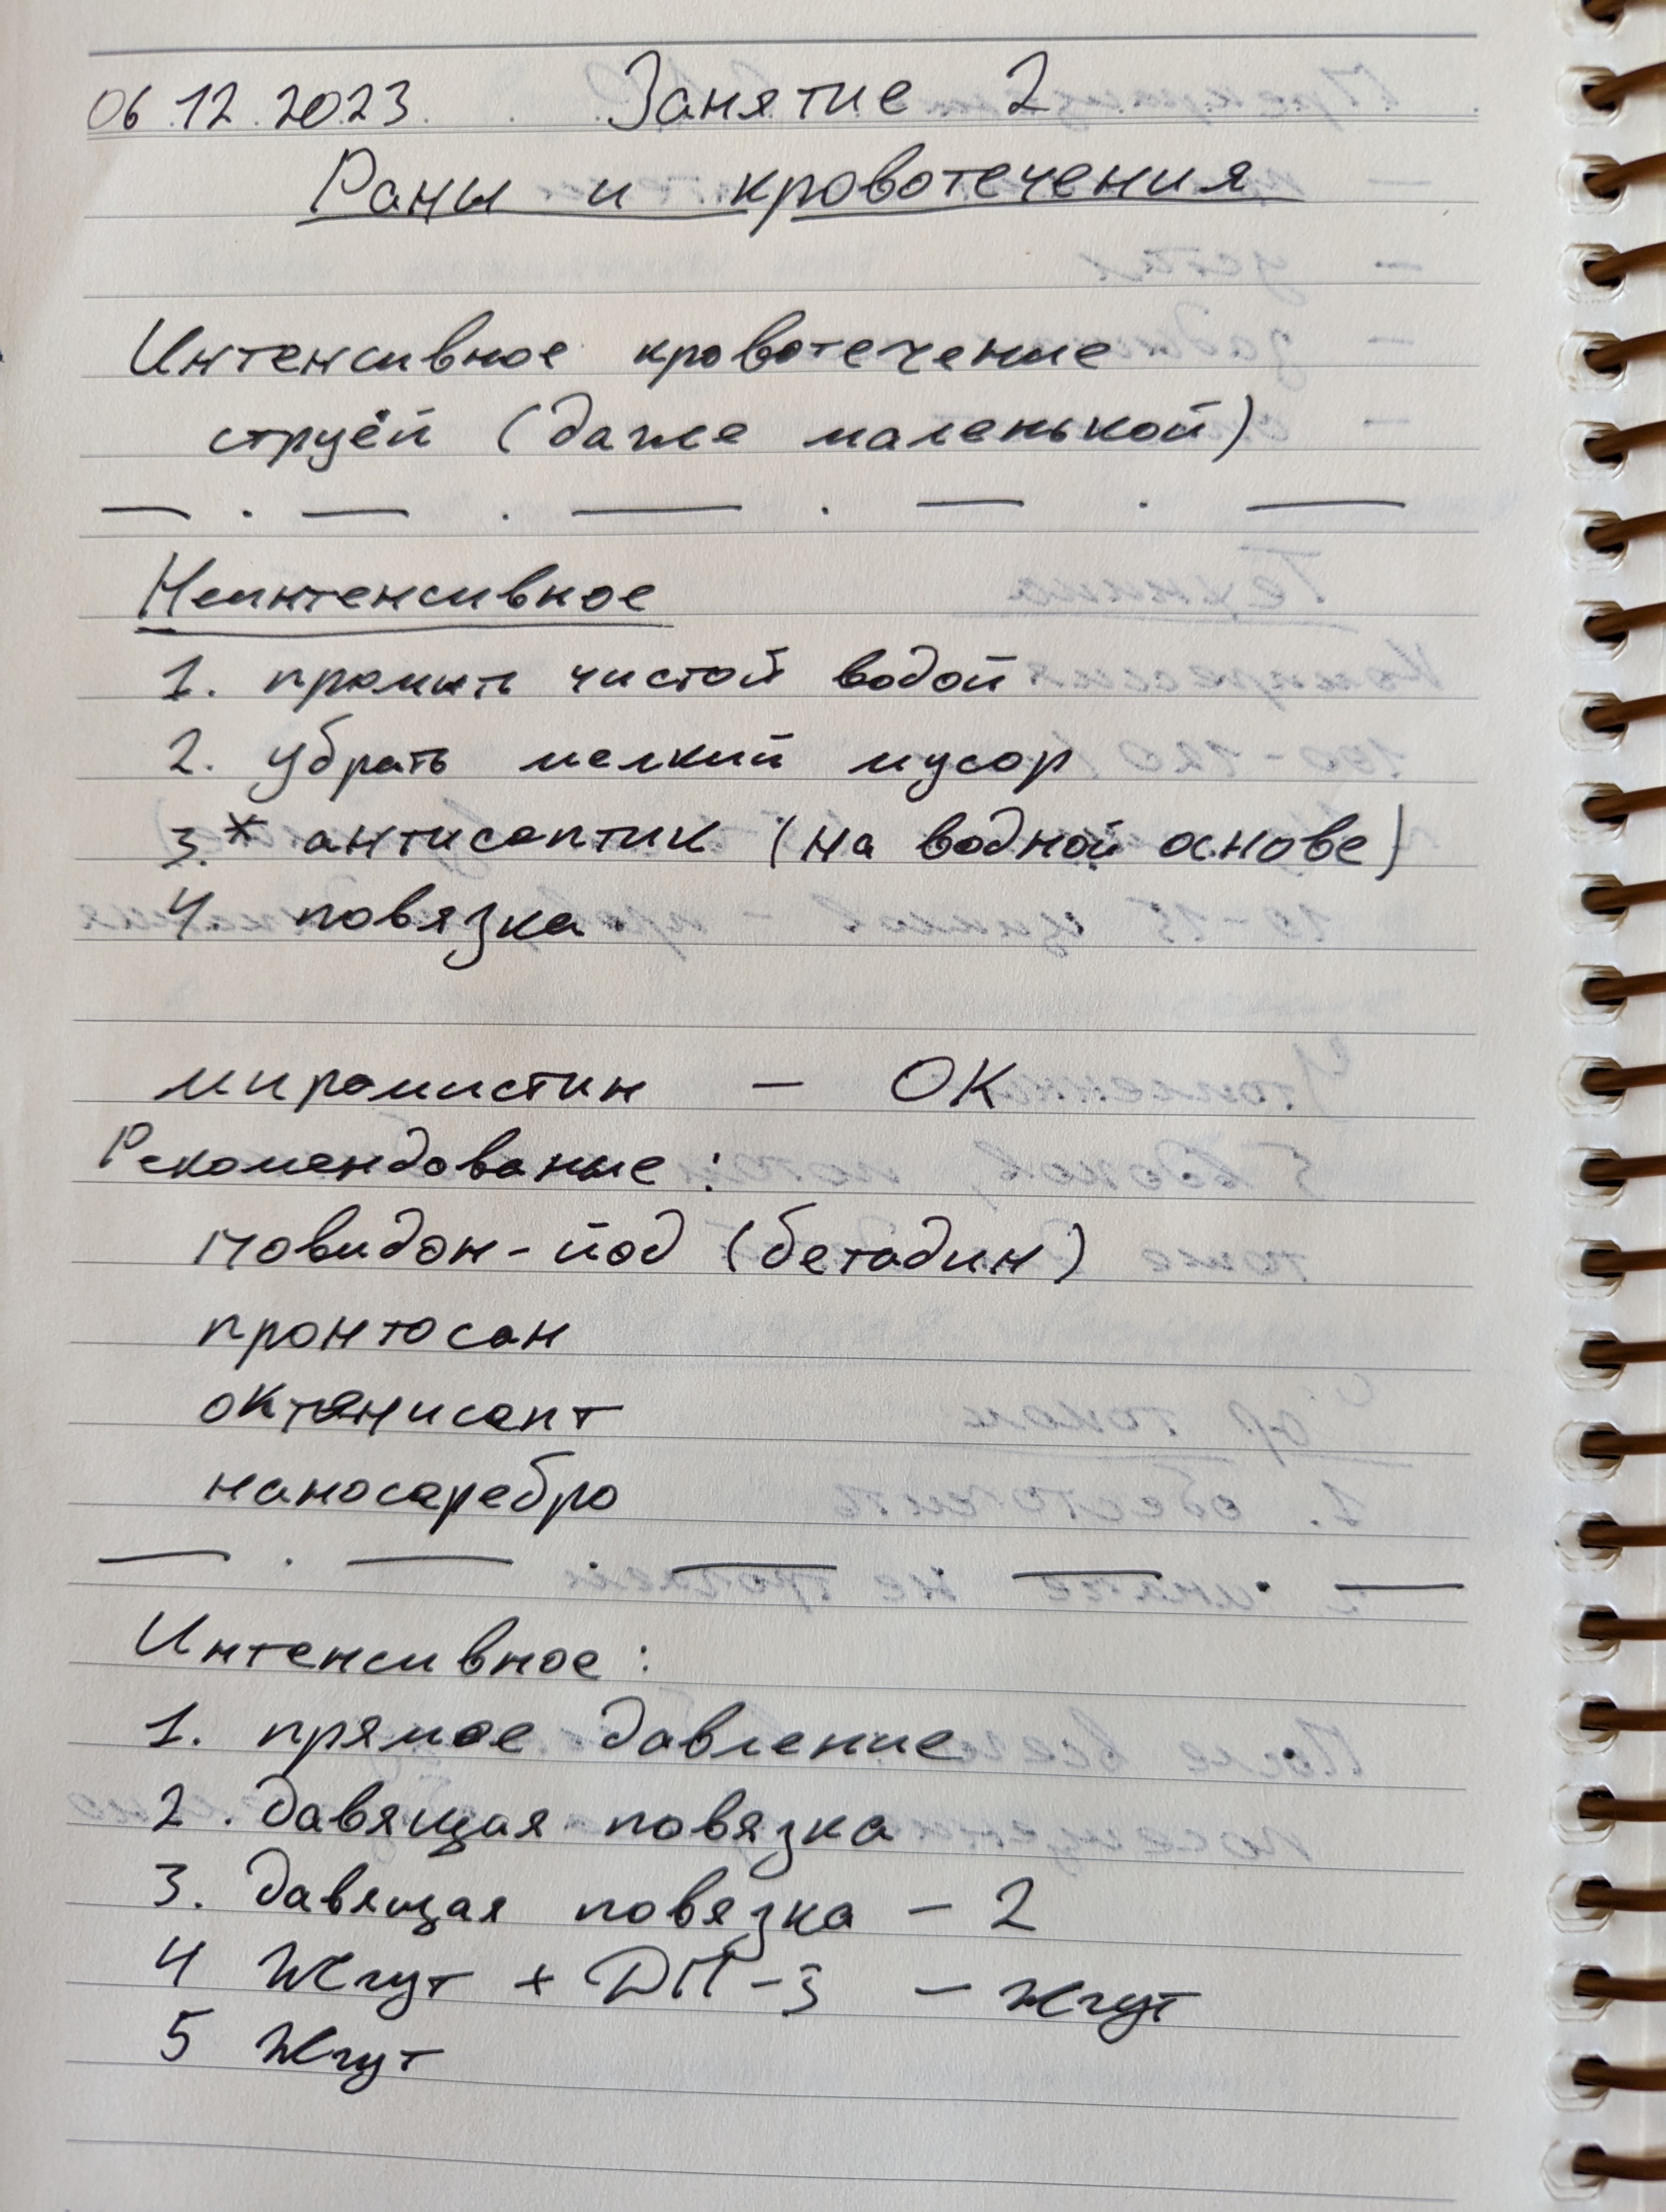 06.12.2023. Занятие 2
Раны и кровотечения
Интенсивное кровотечение
струёй (даже маленькой)
Неинтенсивное
1. промыть чистой водой
2. убрать мелкий мусор
3.* антисептик (на водной основе)
4 повязка
мирамистин - ОК
Рекомендованые:
повидон-йод (бетадин)
пронтосан
октенисепт
наносеребро
Интенсивное:
1. прямое давление
2. давящая повязка
3. давящая повязка - 2
4 Жгут + ДП-3 - жгут
5 Жгут